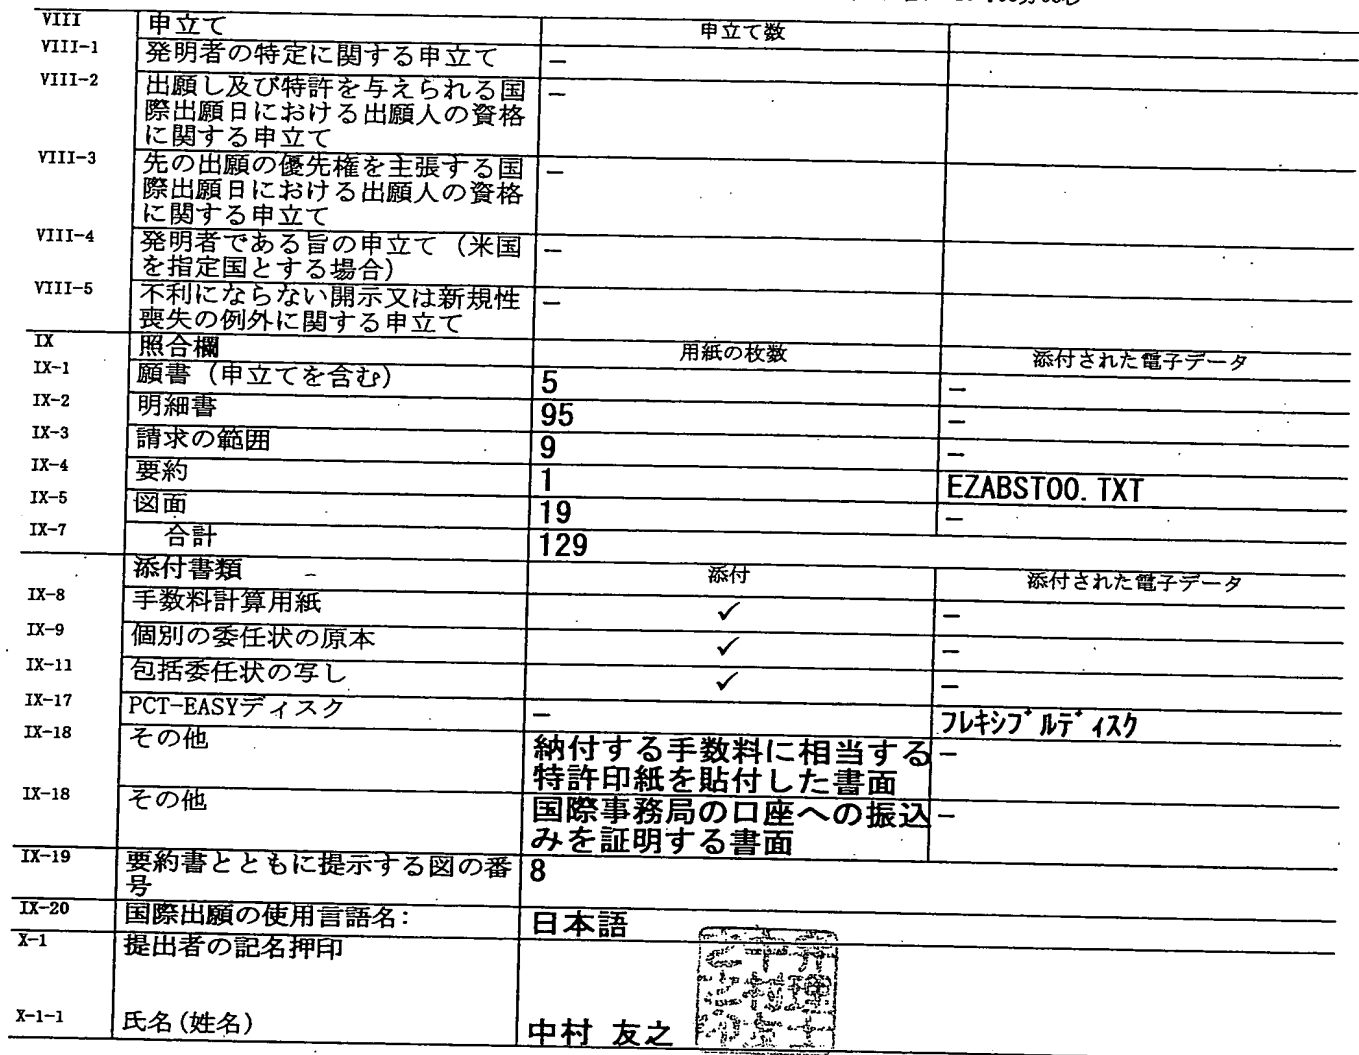 VIII 申立て 申立て数
VIII-1 発明者の特定に関する申立て –
VIII-2 出願し及び特許を与えられる国 –
際出願日における出願人の資格
に関する申立て
VIII-3 先の出願の優先権を主張する国 –
際出願日における出願人の資格
に関する申立て
VIII-4 発明者である旨の申立て（米国 –
を指定国とする場合）
VIII-5 不利にならない開示又は新規性 –
喪失の例外に関する申立て
IX 照合欄 用紙の枚数 添付された電子データ
IX-1 願書（申立てを含む） 5 –
IX-2 明細書 95 –
IX-3 請求の範囲 9 –
IX-4 要約 1 EZABST00.TXT
IX-5 図面 19 –
IX-7 合計 129
添付書類 添付 添付された電子データ
IX-8 手数料計算用紙 ✓ –
IX-9 個別の委任状の原本 ✓ –
IX-11 包括委任状の写し ✓ –
IX-17 PCT-EASYディスク – フレキシブルディスク
IX-18 その他 納付する手数料に相当する –
特許印紙を貼付した書面
IX-18 その他 国際事務局の口座への振込 –
みを証明する書面
IX-19 要約書とともに提示する図の番 8
号
IX-20 国際出願の使用言語名: 日本語
X-1 提出者の記名押印
X-1-1 氏名(姓名) 中村 友之